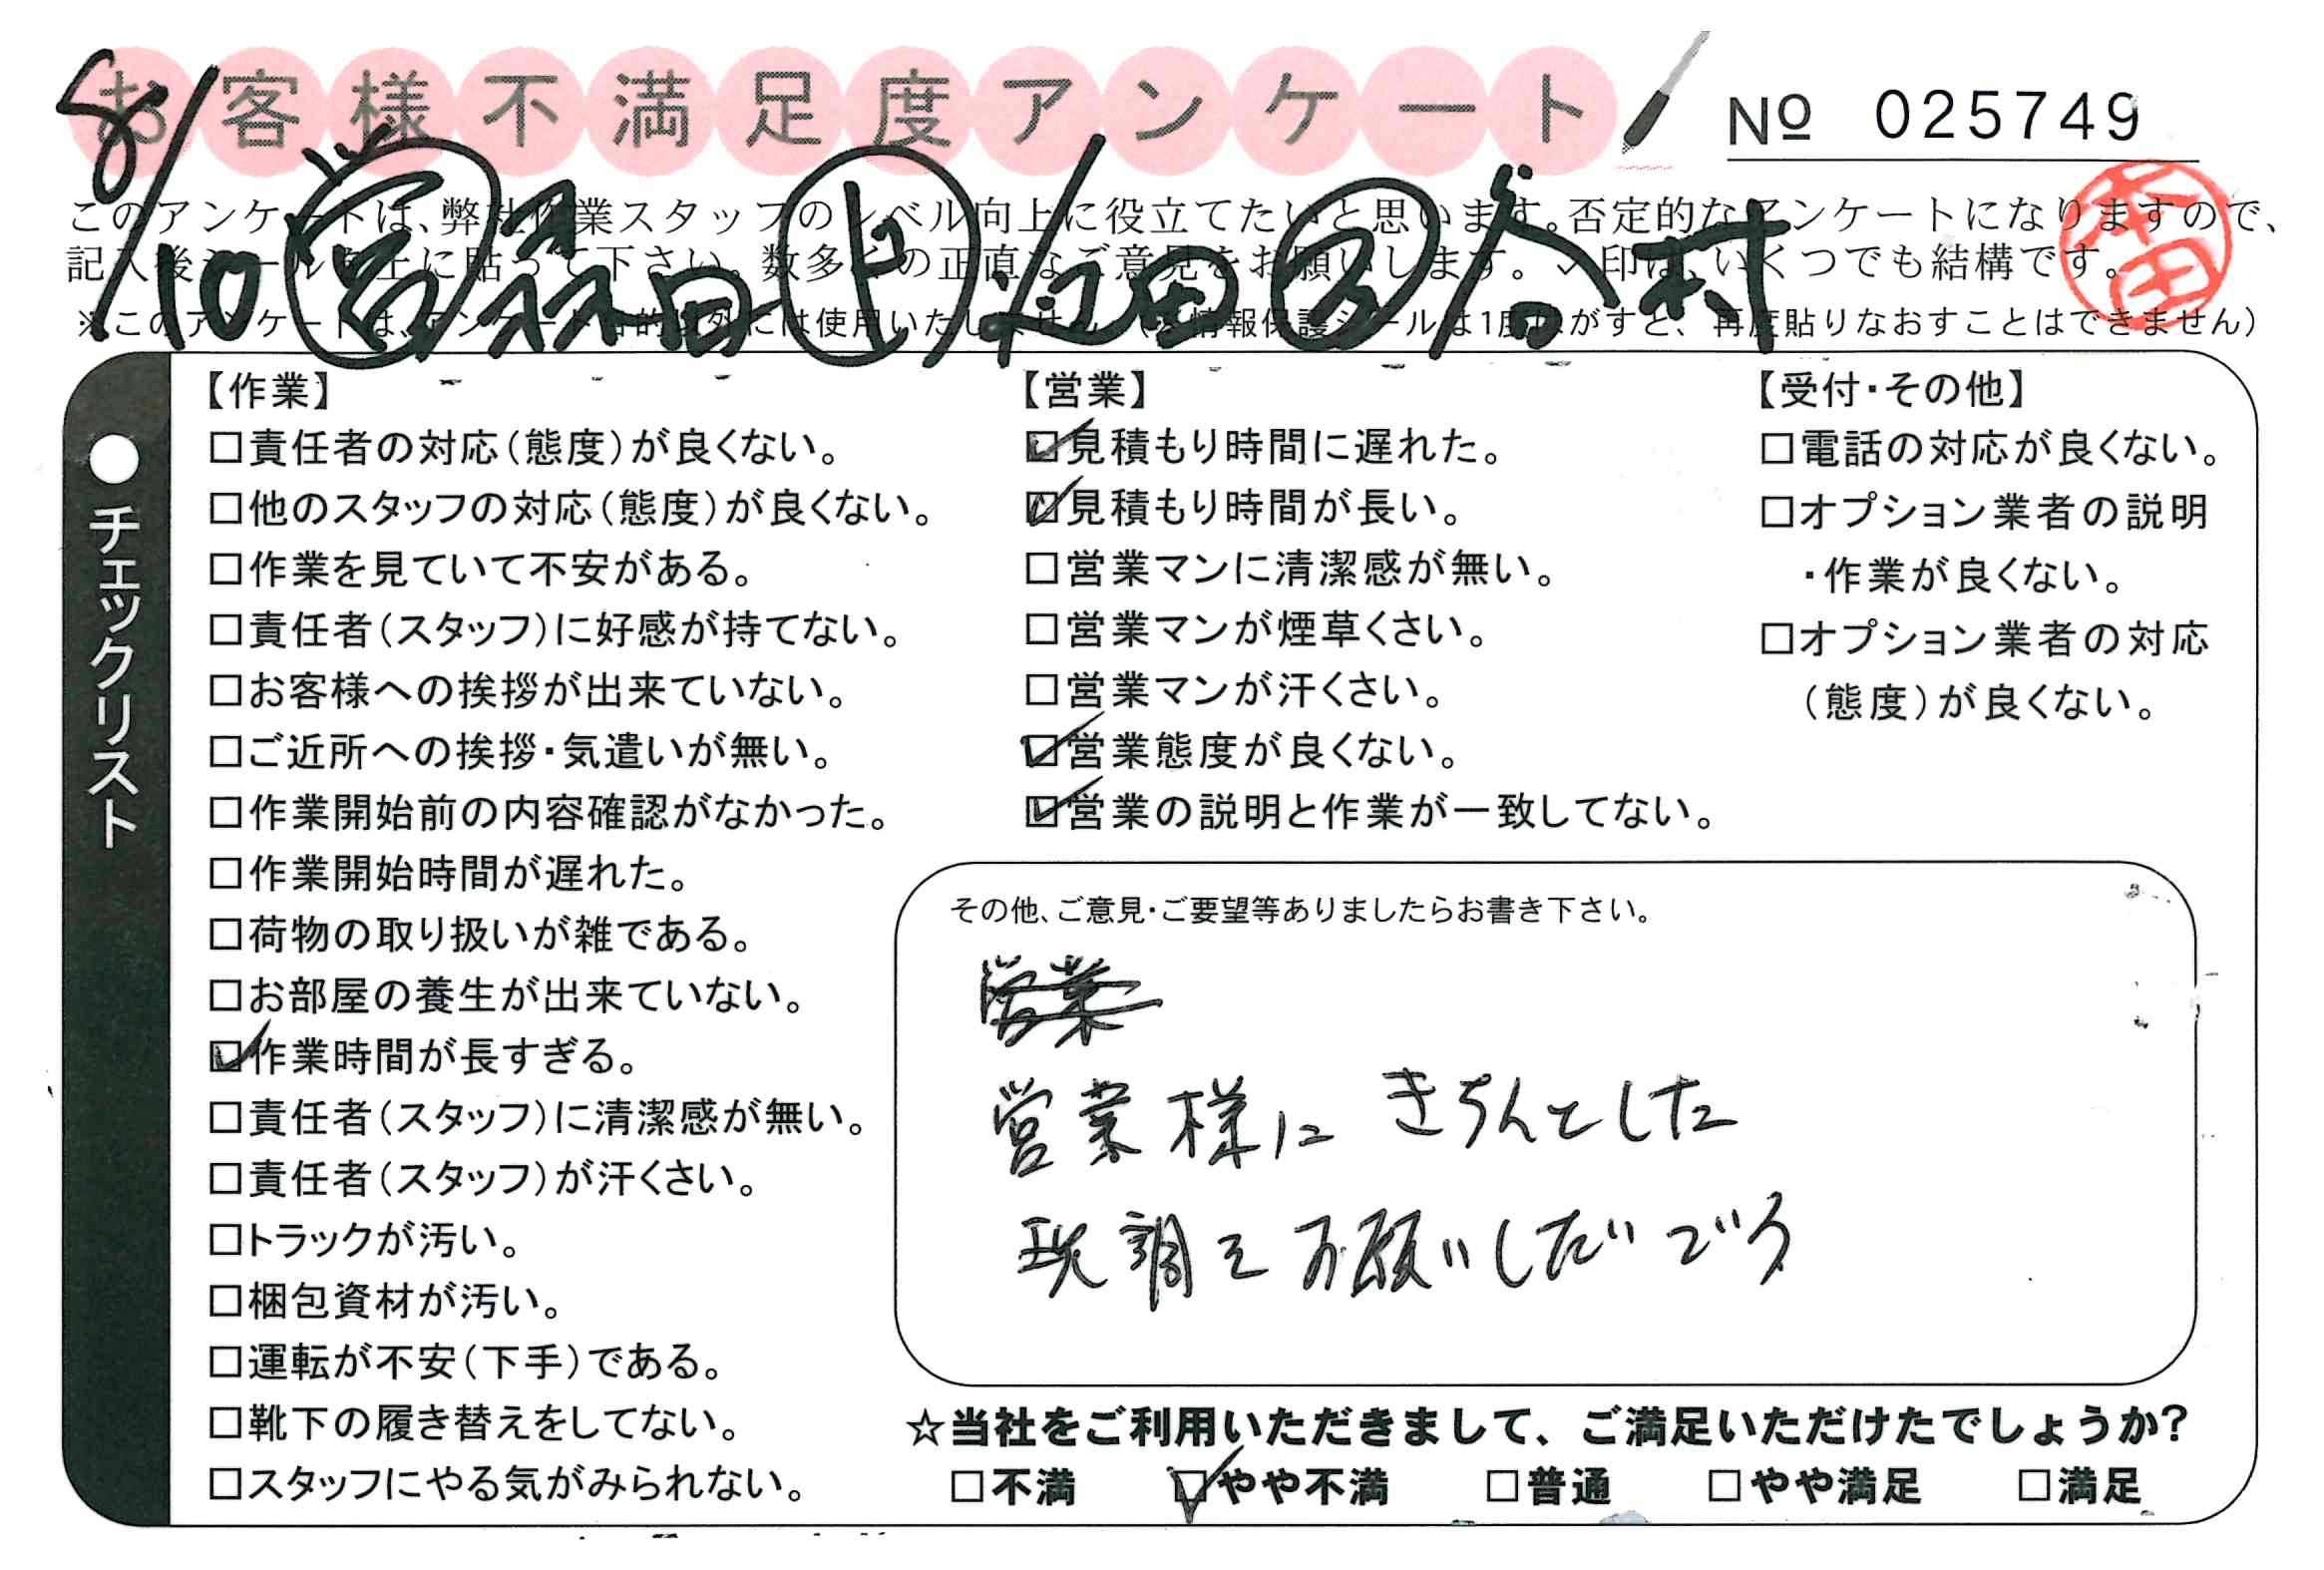 お客様不満足度アンケート
№ 025749
8/10 営 森田 上 池田 谷村
本田
このアンケートは、弊社作業スタッフのレベル向上に役立てたいと思います。否定的なアンケートになりますので、
記入後シールを上に貼って下さい。数多くの正直なご意見をお願いします。✓印は、いくつでも結構です。
※このアンケートは、アンケート目的以外には使用いたしません。(個人情報保護シールは1度はがすと、再度貼りなおすことはできません)
●チェックリスト
【作業】
□責任者の対応(態度)が良くない。
□他のスタッフの対応(態度)が良くない。
□作業を見ていて不安がある。
□責任者(スタッフ)に好感が持てない。
□お客様への挨拶が出来ていない。
□ご近所への挨拶・気遣いが無い。
□作業開始前の内容確認がなかった。
□作業開始時間が遅れた。
□荷物の取り扱いが雑である。
□お部屋の養生が出来ていない。
☑作業時間が長すぎる。
□責任者(スタッフ)に清潔感が無い。
□責任者(スタッフ)が汗くさい。
□トラックが汚い。
□梱包資材が汚い。
□運転が不安(下手)である。
□靴下の履き替えをしてない。
□スタッフにやる気がみられない。
【営業】
☑見積もり時間に遅れた。
☑見積もり時間が長い。
□営業マンに清潔感が無い。
□営業マンが煙草くさい。
□営業マンが汗くさい。
☑営業態度が良くない。
☑営業の説明と作業が一致してない。
【受付・その他】
□電話の対応が良くない。
□オプション業者の説明
・作業が良くない。
□オプション業者の対応
(態度)が良くない。
その他、ご意見・ご要望等ありましたらお書き下さい。
営業
営業様に きちんとした
現調をお願いしたいです
☆当社をご利用いただきまして、ご満足いただけたでしょうか?
□不満 ☑やや不満 □普通 □やや満足 □満足